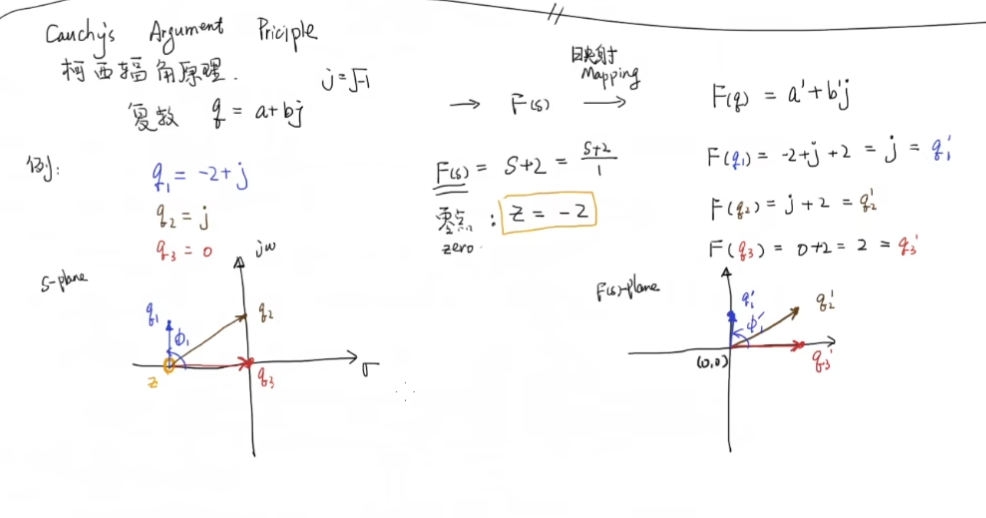 Cauchy's Argument Priciple
柯西辐角原理.
j=√-1
复数 q = a+bj
→ F(s) →
映射
Mapping
F(q) = a'+b'j
例:
q₁ = -2+j
q₂ = j
q₃ = 0
F(s) = S+2 = (S+2)/1
零点 : Z = -2
zero.
F(q₁) = -2+j+2 = j = q₁'
F(q₂) = j+2 = q₂'
F(q₃) = 0+2 = 2 = q₃'
S-plane
jω
q₁
q₂
ϕ₁
Z
q₃
σ
F(s)-plane
q₁'
q₂'
ϕ₁'
(0,0)
q₃'